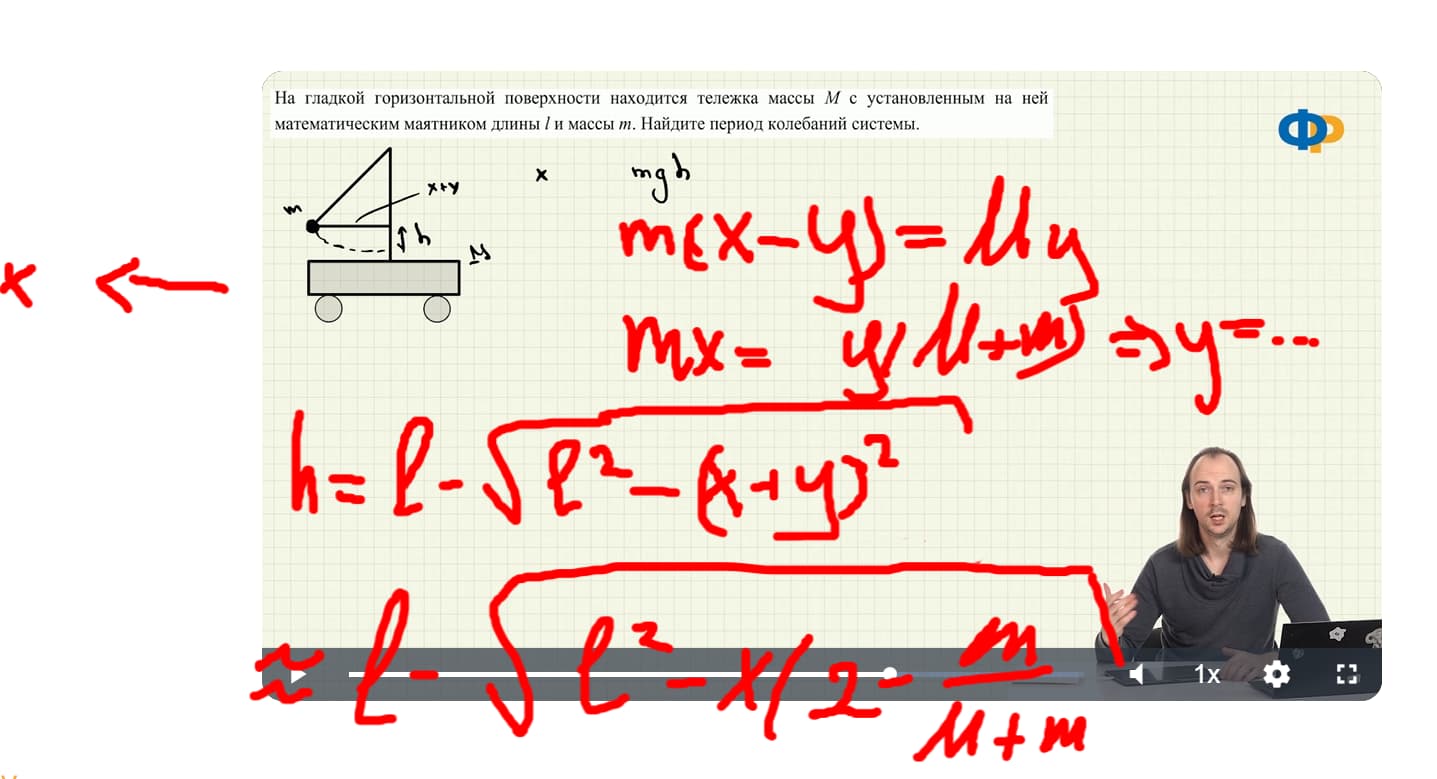 На гладкой горизонтальной поверхности находится тележка массы M с установленным на ней
математическим маятником длины l и массы m. Найдите период колебаний системы.
ФР
x
mgh
x+y
m
h
M
m(x-y) = My
x ←
mx = y(M+m) ⇒ y = ...
h = l - √(l² - (x+y)²
≈ l - √(l² - x(2 - m/(M+m)
1x